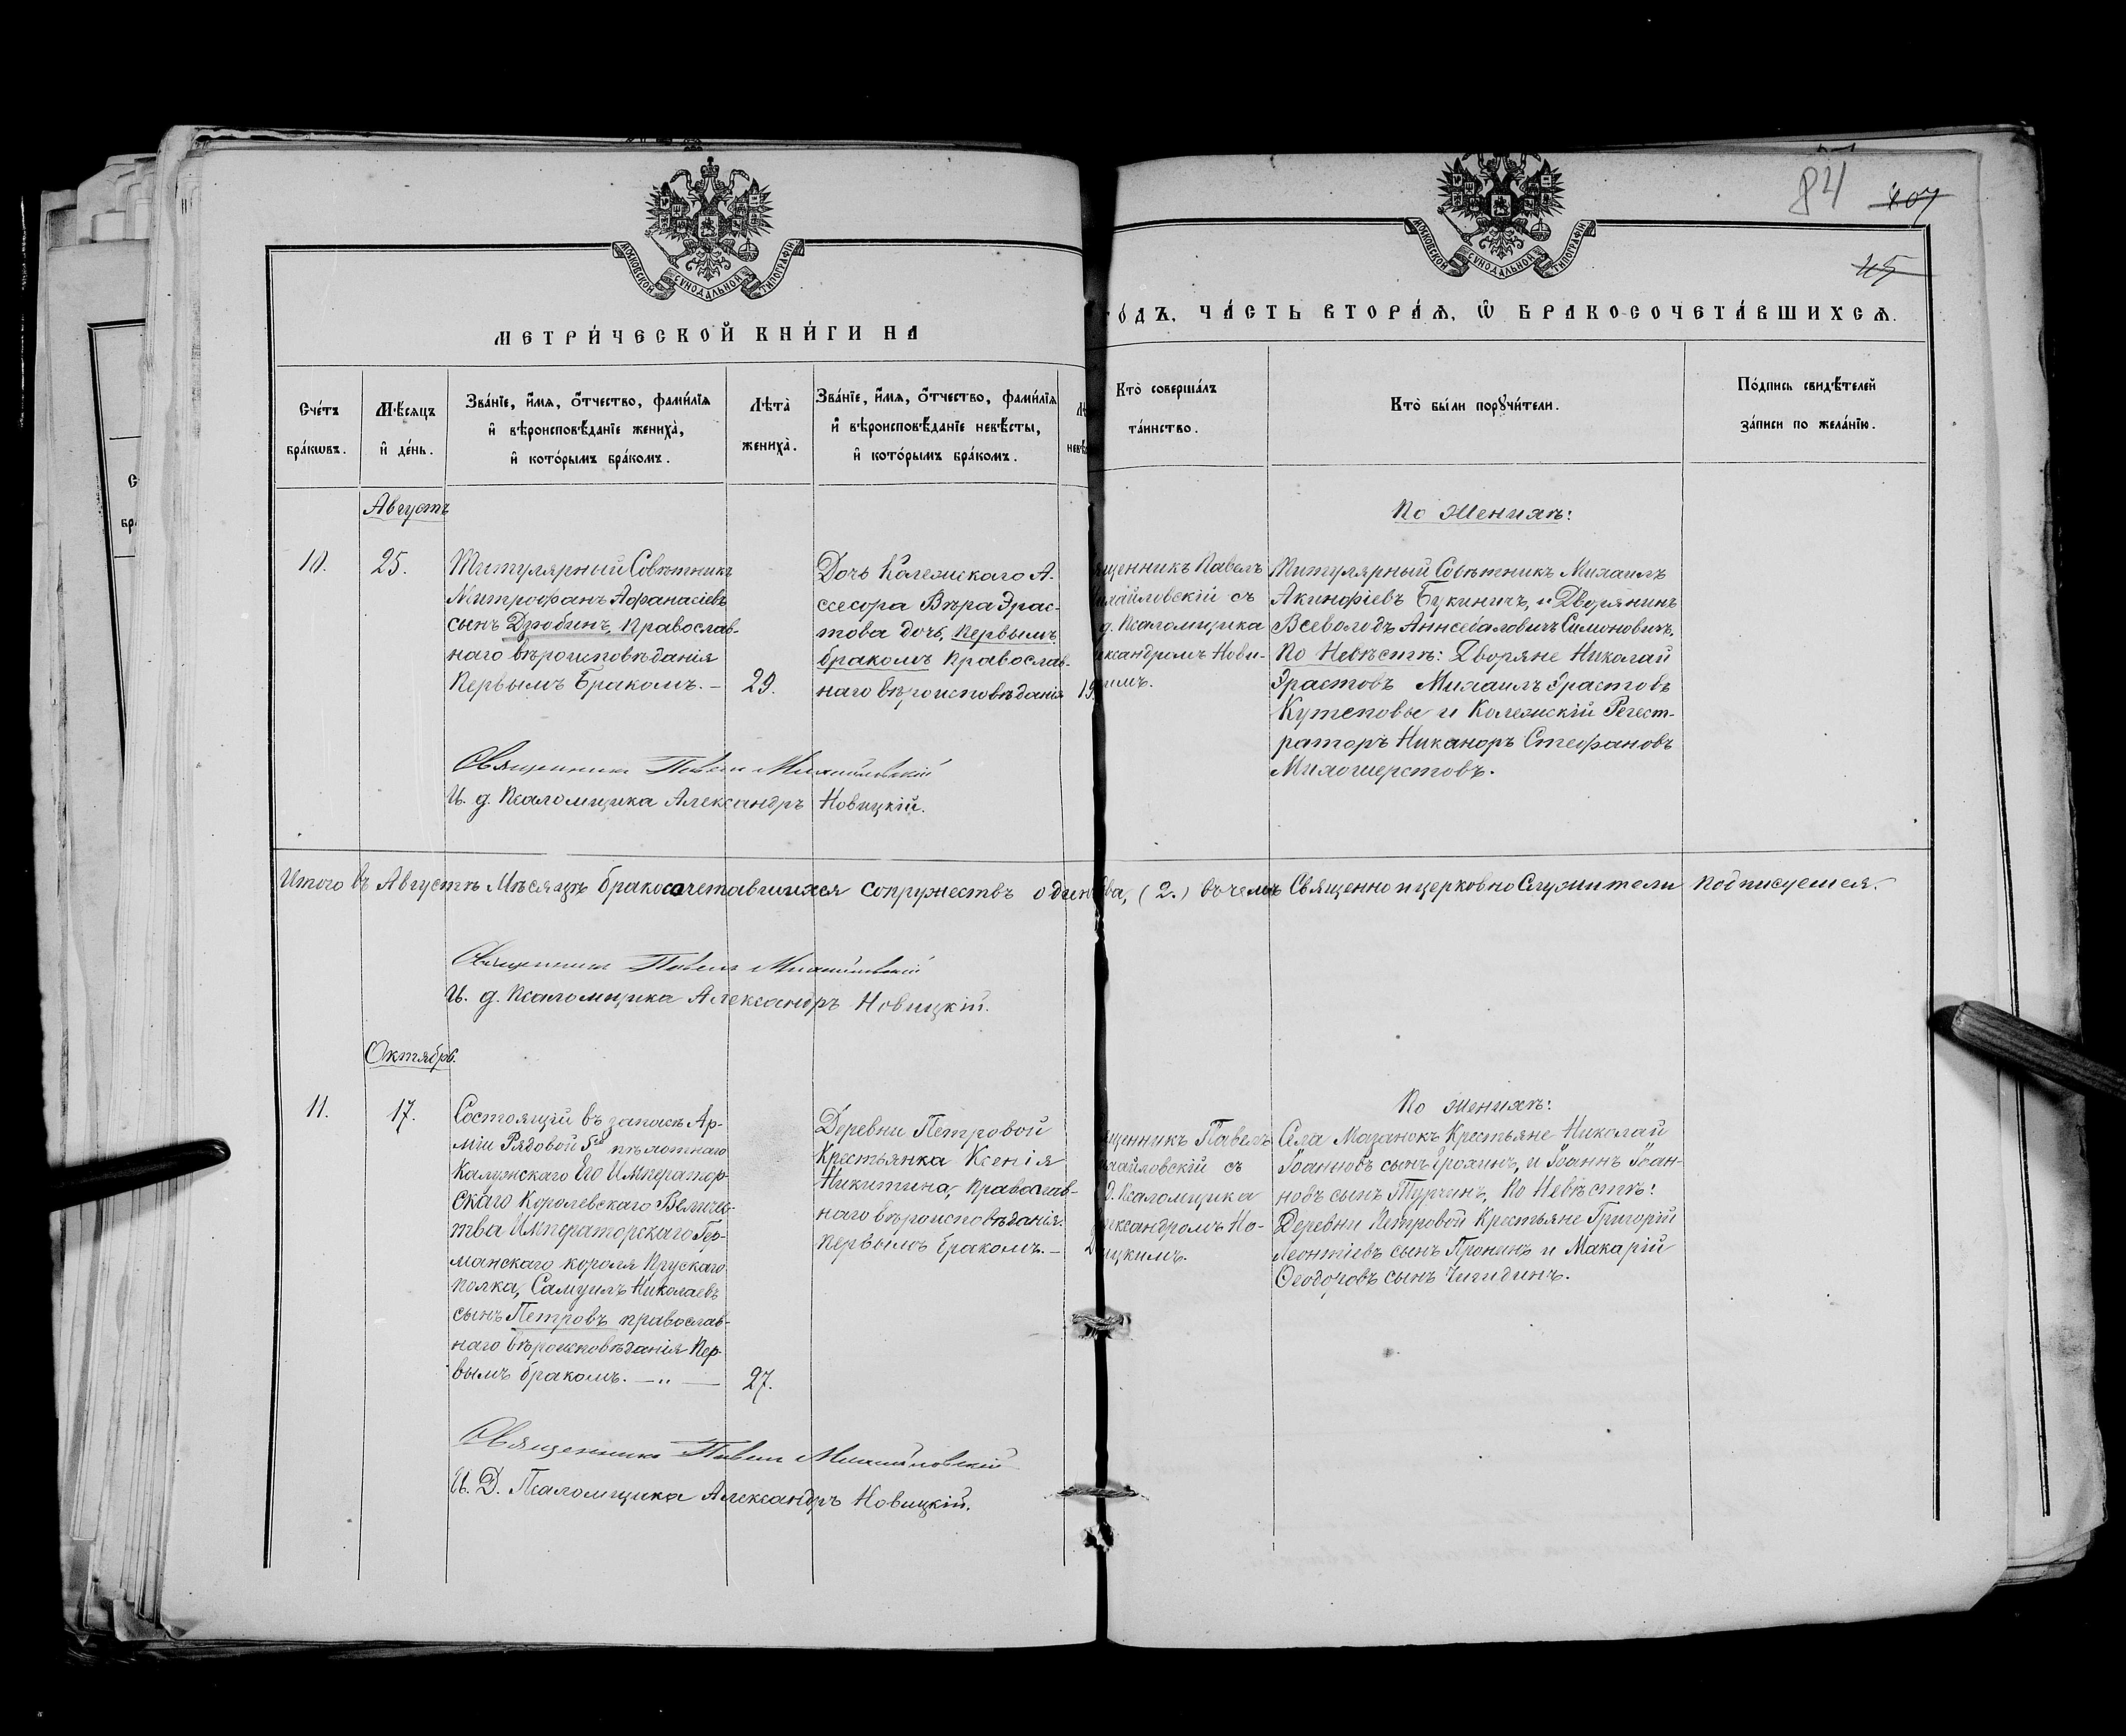 84 107
115
МОСКОВСКОЙ СУНОДАЛЬНОЙ ТИПОГРАФІИ
МОСКОВСКОЙ СУНОДАЛЬНОЙ ТИПОГРАФІИ
МЕТРИ́ЧЕСКОЙ КНИ́ГИ НА
О́ДЪ, ЧА́СТЬ ВТОРА́Ѧ, Ѡ҆ БРАКОСОЧЕТА́ВШИХСѦ.
Сче́тъ
бра́кѡвъ.
Мѣ́сѧцъ
и҆ де́нь.
Зва́нїе, и҆́мѧ, ѻ҆́тчество, фами́лїѧ
и҆ вѣроисповѣ́данїе жениха̀,
и҆ кото́рымъ бра́комъ.
Лѣта̀
жениха̀.
Зва́нїе, и҆́мѧ, ѻ҆́тчество, фами́лїѧ
и҆ вѣроисповѣ́данїе невѣ́сты,
и҆ кото́рымъ бра́комъ.
Кто̀ соверша́лъ
та́инство.
Кто̀ бы́ли порꙋчи́тели.
По́дпись свидѣ́телей
за́писи по жела́нїю.
Августъ
10.
25.
Титулярный Совѣтникъ
Митрофанъ Афанасіевъ
сынъ Дзюбинъ, Православ-
наго вѣроисповѣданія
Первымъ бракомъ. —
29.
Дочь Колежскаго А-
ссесора Вѣра Эрас-
това дочь, первымъ
бракомъ Православ-
наго вѣроисповѣданія
19
щенникъ Павелъ
ихайловскій съ
д. Псаломщика
ександромъ Нови-
кимъ.
По Женихѣ:
Титулярный Совѣтникъ Михаилъ
Акинфіевъ Букиничъ, и Дворянинъ
Всеволодъ Аннебаловичъ Симоновичъ,
По Невѣстѣ: Дворяне Николай
Эрастовъ Михаилъ Эрастовъ
Кутеповы и Колежскій Регист-
раторъ Никаноръ Стефановъ
Милошерстовъ.
Священникъ Павелъ Михайловскій
И. д. Псаломщика Александръ Новицкій.
Итого въ Августѣ Мѣсяцѣ бракосочетавшихся супружествъ два, (2.) въ чемъ Священно и церковно Служители подписуемся.
Священникъ Павелъ Михайловскій
И. д. Псаломщика Александръ Новицкій.
Октябрь.
11.
17.
Состоящій въ запасѣ Ар-
міи Рядовой 5го пѣхотнаго
Калужскаго Его Император-
скаго Королевскаго Величес-
тва Императорскаго Гер-
манскаго короля Прускаго
полка, Самуилъ Николаевъ
сынъ Петровъ православ-
наго вѣроисповѣданія Пер-
вымъ бракомъ. — „ —
27.
Деревни Петровой
Крестьянка Ксенія
Никитина, Православ-
наго вѣроисповѣданія.
Первымъ бракомъ. —
щенникъ Павелъ
хайловскій съ
Д. Псаломщика
лександромъ Но-
ицкимъ.
По Женихѣ:
Села Мазанокъ Крестьяне Николай
Іоанновъ сынъ Ерохинъ, и Іоаннъ Іоан-
новъ сынъ Турчинъ, По Невѣстѣ:
Деревни Петровой Крестьяне Григорій
Леонтіевъ сынъ Пронинъ и Макарій
Ѳеодоровъ сынъ Чигидинъ.
Священникъ Павелъ Михайловскій
И. Д. Псаломщика Александръ Новицкій.